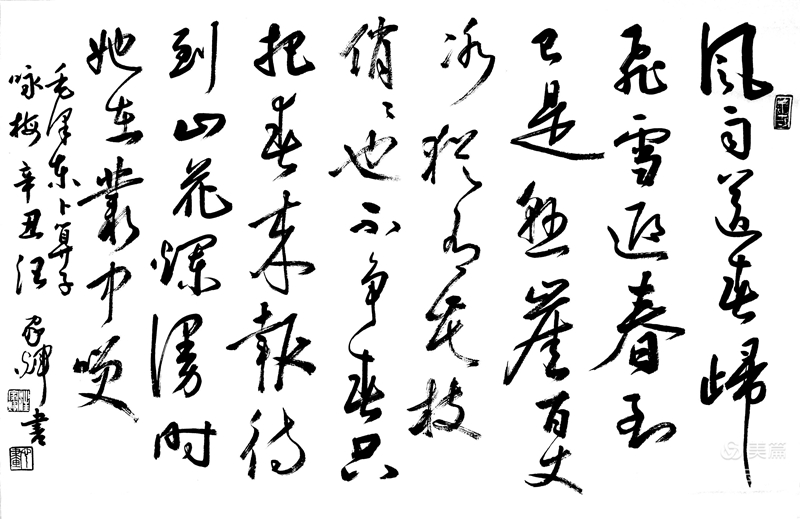 风雨送春歸
飛雪迎春到
已是懸崖百丈
冰猶有花枝
俏〻也不争春只
把春来報待
到山花爛漫时
她在叢中笑
毛澤东卜算子
咏梅 辛丑汪家輝書
美篇